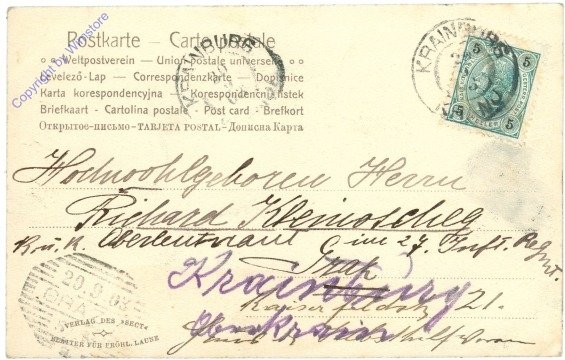 Postkarte – Carte postale
Weltpostverein – Union postale universelle
Levelező-Lap – Correspondenzkarte – Dopisnice
Karta korespondencyjna – Korespondenční lístek
Briefkaart – Cartolina postale – Post card – Brefkort
Открытое-письмо – TARJETA POSTAL – Дописна Карта
Copyright by Wimstore
KRAINBURG
KRAINBURG
KRANJ
5 5
5 5
Hochwohlgeboren Herrn
Richard Kleinoscheg
K. u. K. Oberleutnant im 27. Inft. Regmt.
Graz
Krainburg
Kaiserfeldg. 21.
Krain
20.9.03
GRAZ
VERLAG DES »SECT«
BESITZER FÜR FRÖHL. LAUNE